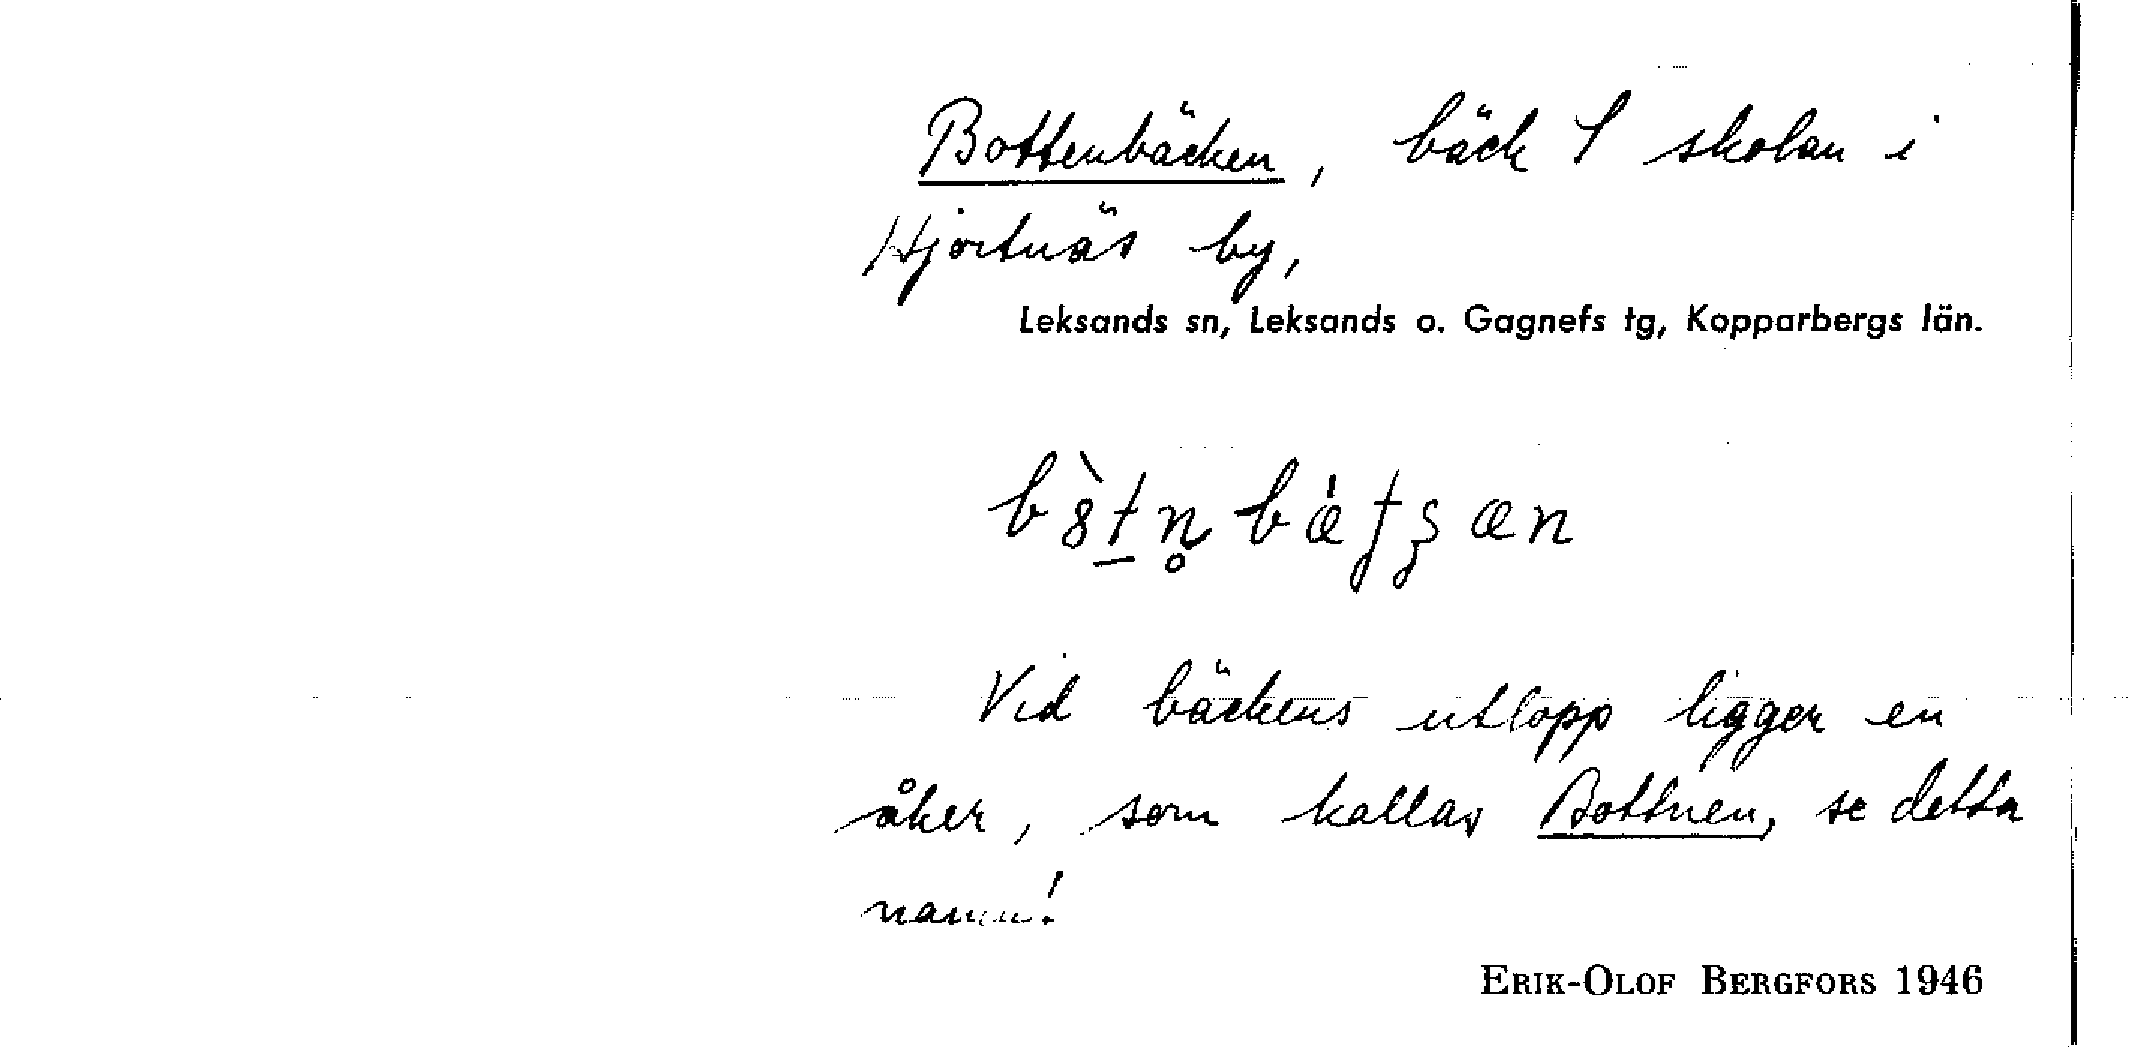 Bottenbäcken, bäck S skolan i
Hjortnäs by,
Leksands sn, Leksands o. Gagnefs tg, Kopparbergs län.
Vid bäckens utlopp ligger en
åker, som kallas Bottnen, se detta
namn!
ERIK-OLOF BERGFORS 1946